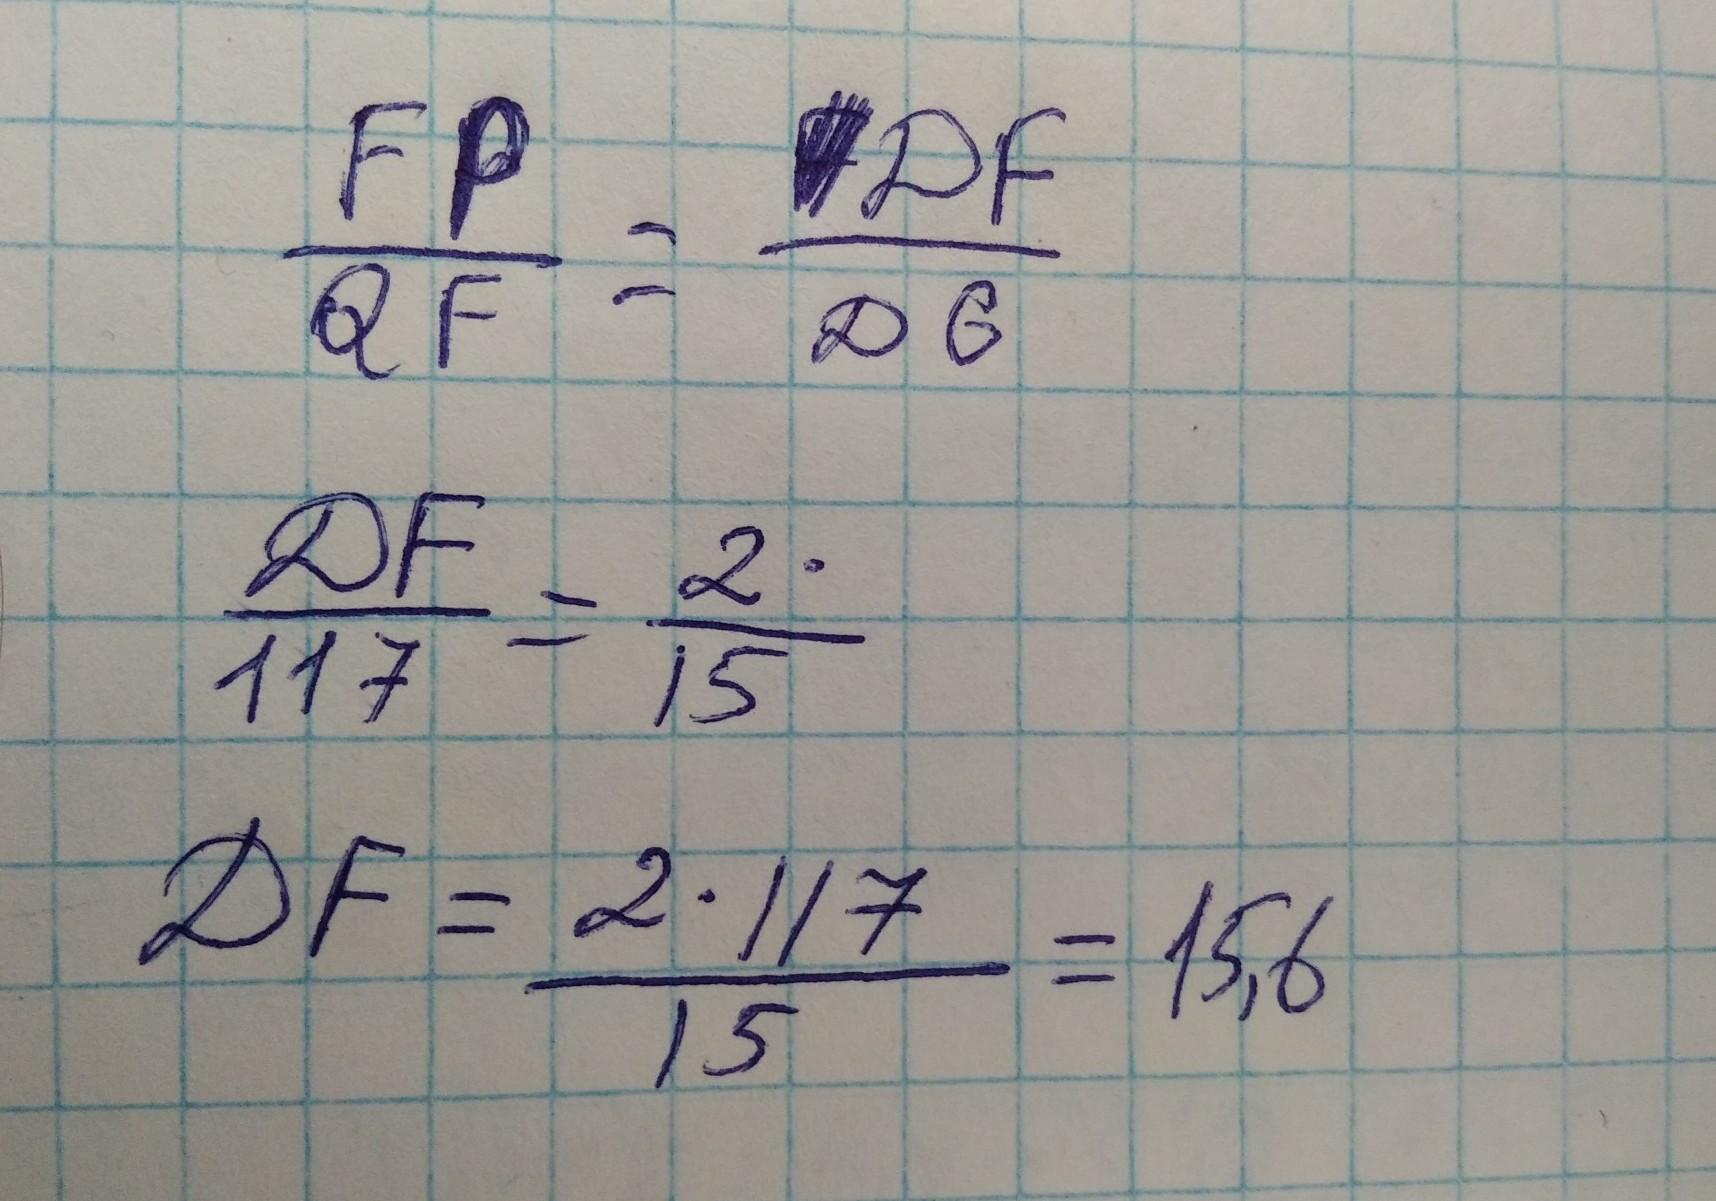 FP/QF = DF/DG
DF/117 = 2·/15
DF = 2·117/15 = 15,6